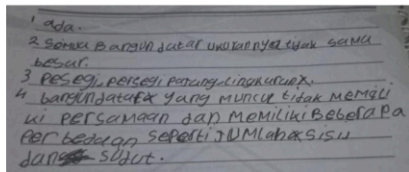 1 ada.
2 semua Bangun datar ukurannya tidak sama
besar.
3 Pesegi, persegi panjang, lingkaran.
4 bangun datar yang muncul tidak memili
ki persamaan dan memiliki Beberapa
perbedaan seperti jumlah sisi
dan sudut.